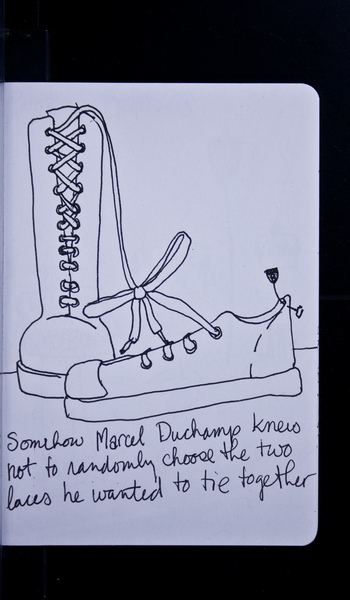 Somehow Marcel Duchamp knew
not to randomly choose the two
laces he wanted to tie together